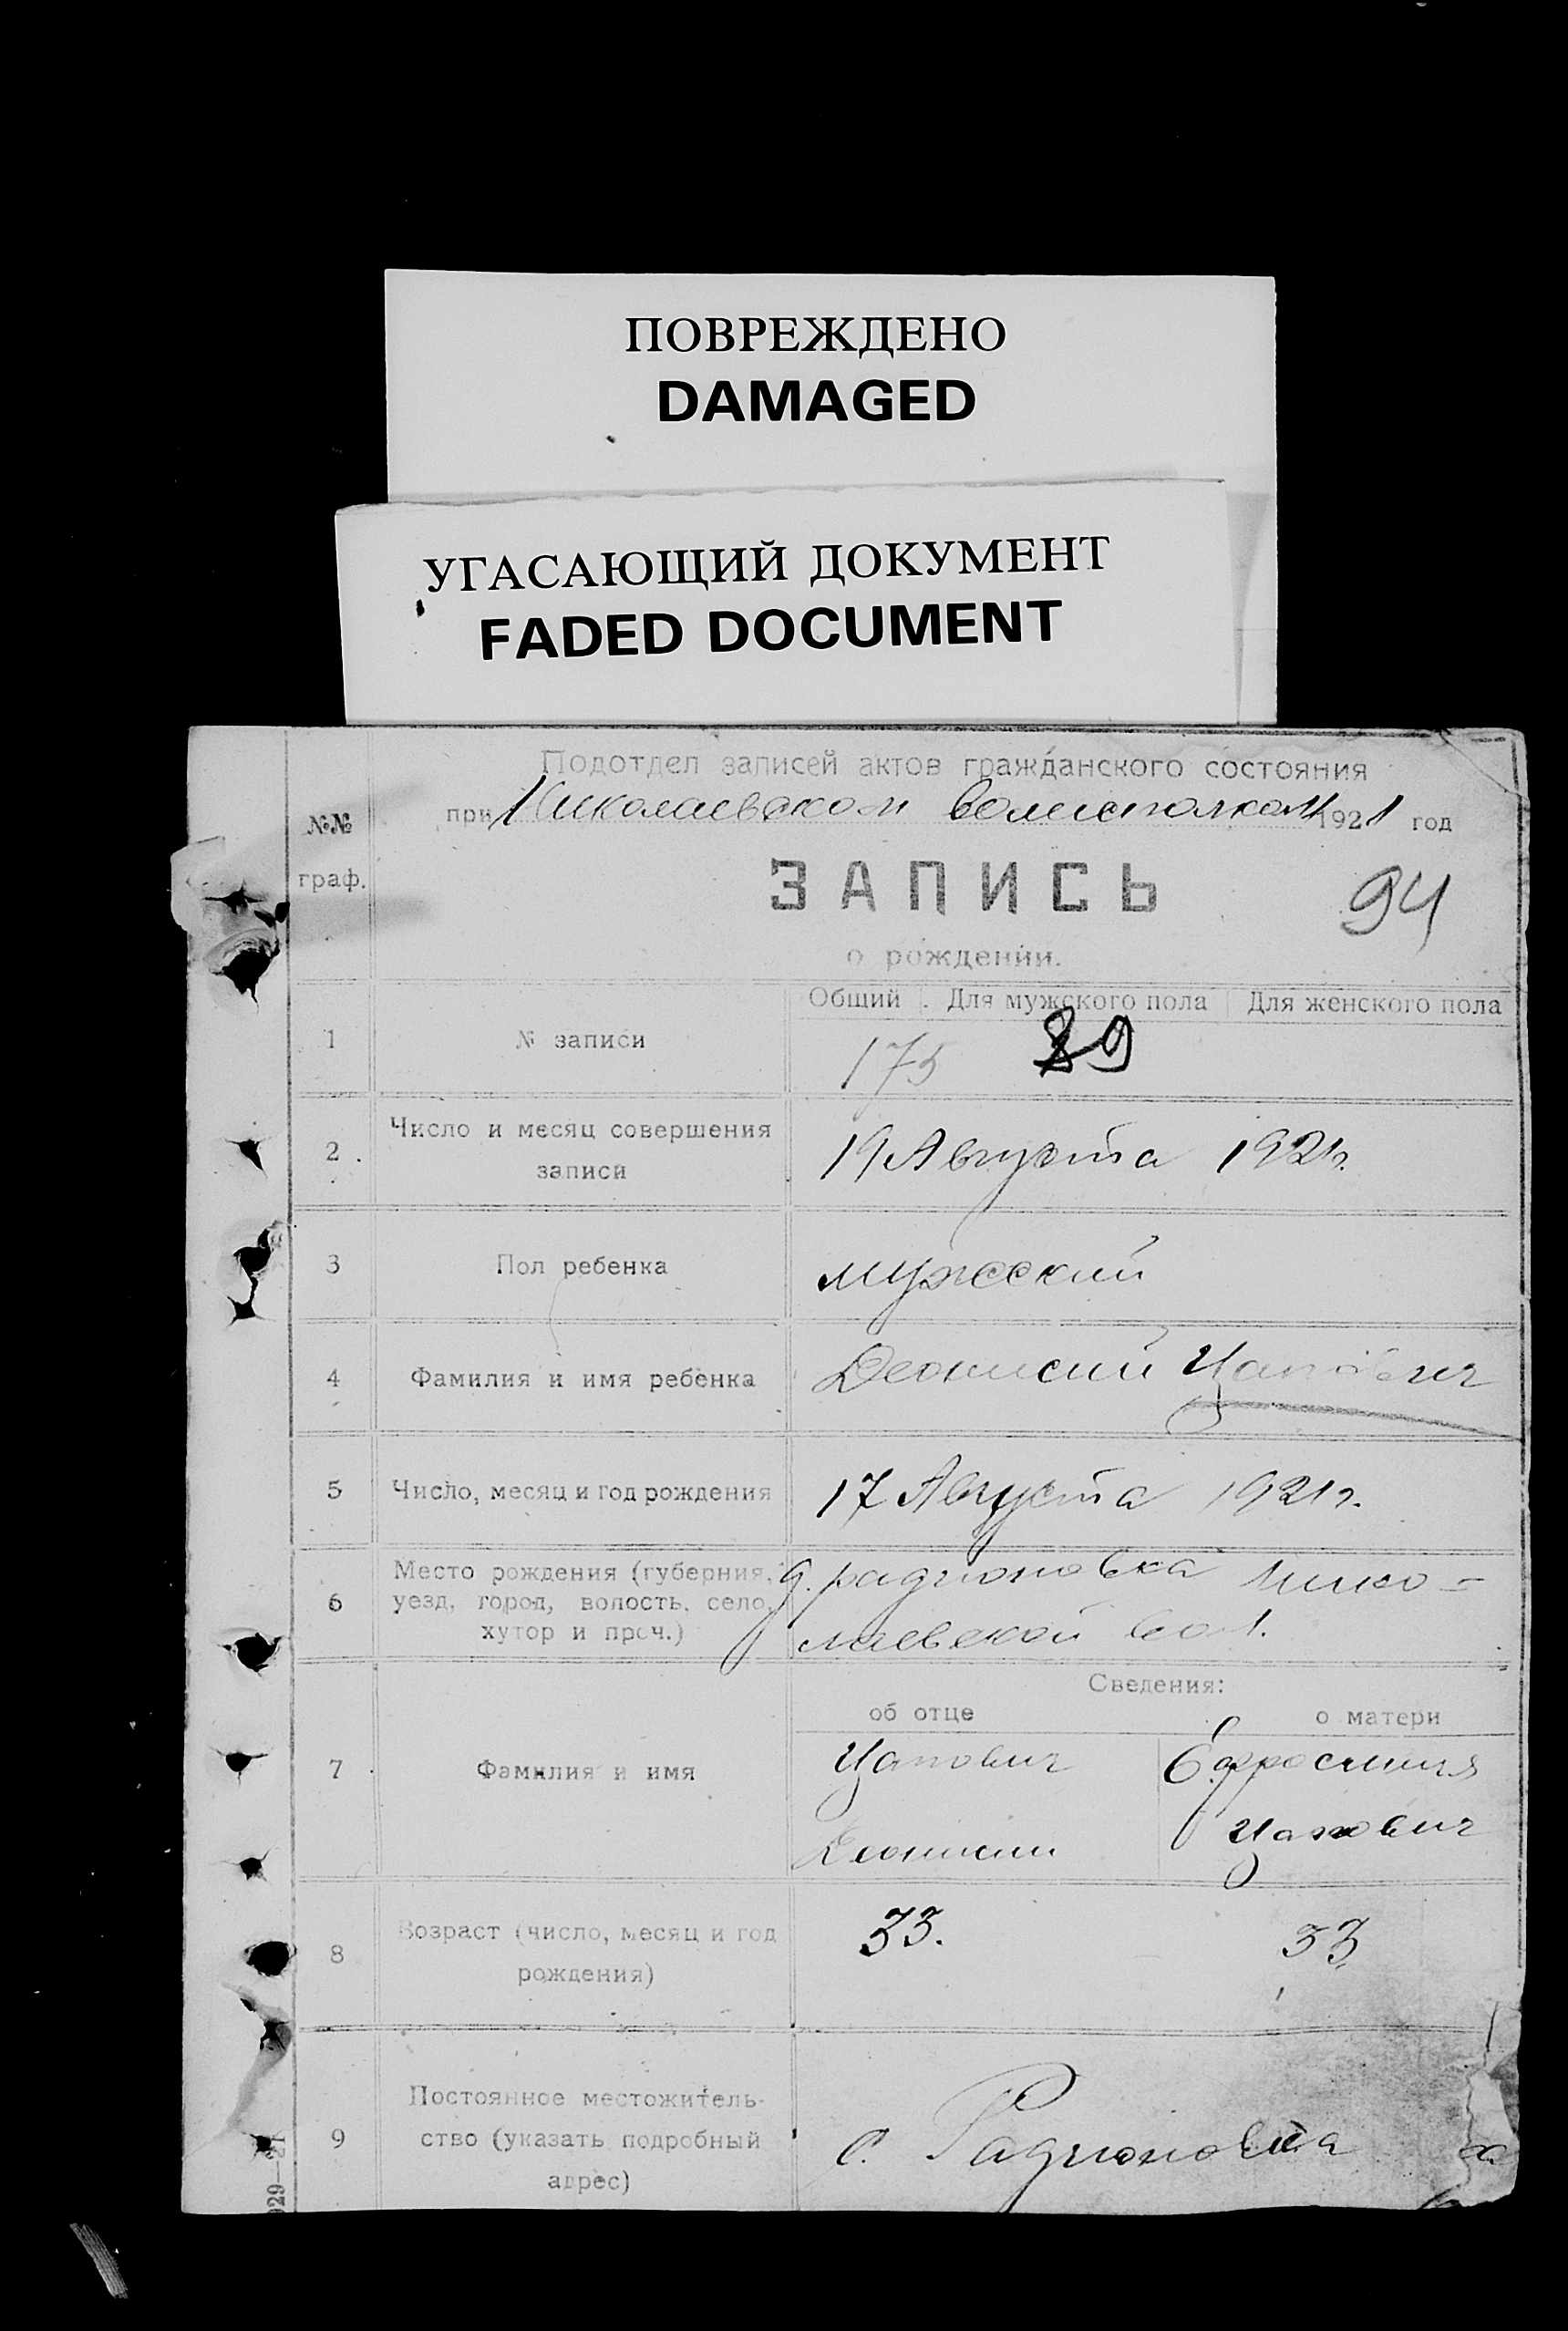 ПОВРЕЖДЕНО
DAMAGED
УГАСАЮЩИЙ ДОКУМЕНТ
FADED DOCUMENT
Подотдел записей актов гражданского состояния
при Николаевском волисполком 1921 год
№№
граф.
ЗАПИСЬ
94
о рождении.
Общий Для мужского пола Для женского пола
1 № записи 175 89
2 Число и месяц совершения
записи
19 Августа 1921г.
3 Пол ребенка мужеский
4 Фамилия и имя ребенка Деонисий Цапович
5 Число, месяц и год рождения 17 Августа 1921г.
6 Место рождения (губерния,
уезд, город, волость, село,
хутор и проч.)
д. радионовка Нико-
лаевской вол.
Сведения:
об отце о матери
7 Фамилия и имя
Цапович Ефросиния
Деонисий Цапович
8 Возраст (число, месяц и год
рождения)
33. 33
9 Постоянное местожитель-
ство (указать подробный
адрес)
с. Радионовка
929—21